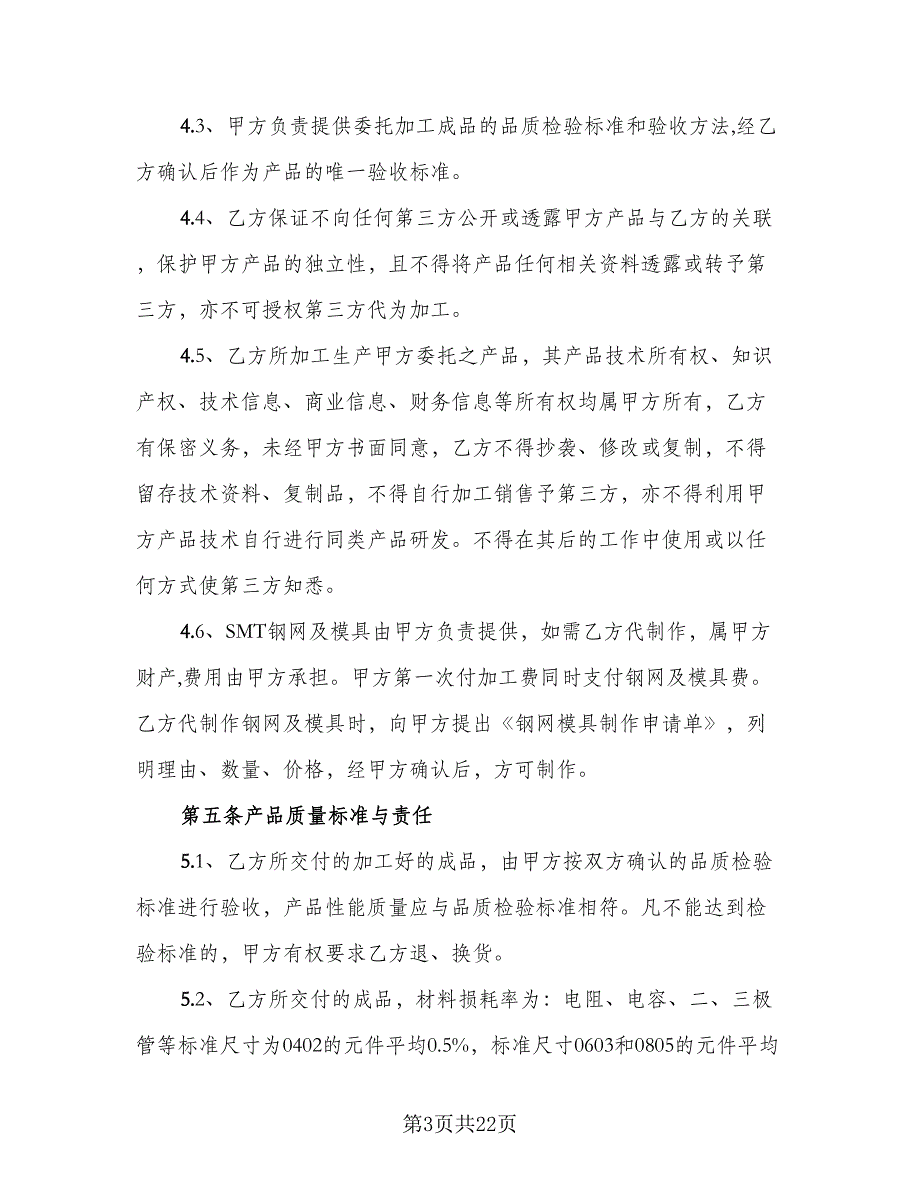 4.3、甲方负责提供委托加工成品的品质检验标准和验收方法,经乙
方确认后作为产品的唯一验收标准。
4.4、乙方保证不向任何第三方公开或透露甲方产品与乙方的关联
，保护甲方产品的独立性，且不得将产品任何相关资料透露或转予第
三方，亦不可授权第三方代为加工。
4.5、乙方所加工生产甲方委托之产品，其产品技术所有权、知识
产权、技术信息、商业信息、财务信息等所有权均属甲方所有，乙方
有保密义务，未经甲方书面同意，乙方不得抄袭、修改或复制，不得
留存技术资料、复制品，不得自行加工销售予第三方，亦不得利用甲
方产品技术自行进行同类产品研发。不得在其后的工作中使用或以任
何方式使第三方知悉。
4.6、SMT钢网及模具由甲方负责提供，如需乙方代制作，属甲方
财产,费用由甲方承担。甲方第一次付加工费同时支付钢网及模具费。
乙方代制作钢网及模具时，向甲方提出《钢网模具制作申请单》，列
明理由、数量、价格，经甲方确认后，方可制作。
第五条产品质量标准与责任
5.1、乙方所交付的加工好的成品，由甲方按双方确认的品质检验
标准进行验收，产品性能质量应与品质检验标准相符。凡不能达到检
验标准的，甲方有权要求乙方退、换货。
5.2、乙方所交付的成品，材料损耗率为：电阻、电容、二、三极
管等标准尺寸为0402的元件平均0.5%，标准尺寸0603和0805的元件平均
第3页共22页